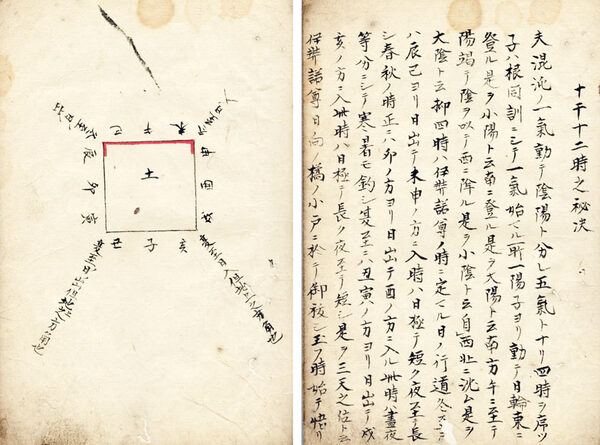 十干十二時之秘决
夫混沌ノ一氣動テ陰陽ト分レ五氣トナリ四時ヲ序
子ハ根同訓ニシテ一氣始ル所一陽子ヨリ動テ日輪東
登ル是ヲ小陽ト云南ニ登ル是ヲ大陽ト云南方午ニ至テ
陽竭テ陰ヲ以テ西ニ降ル是ヲ小陰ト云自西北ニ沈ム是ヲ
大陰ト云抑四時ハ伊弉諾尊ノ時ニ定ル日ノ行道冬至ニ
ハ辰巳ヨリ日出テ未申ノ方ニ入時ハ日極テ短ク夜至テ長
シ春秋ノ時正ニハ卯ノ方ヨリ日出テ酉ノ方ニ入ル此時晝夜
等分ニシテ寒暑モ鈞シ夏至ニハ丑寅ノ方ヨリ日出テ戌
亥ノ方ニ入此時ハ日極テ長ク夜至テ短シ是ヲ三天之位ト云
伊弉諾尊日向ノ橘ノ小戸ニ於テ御祓シ玉フ時始テ悟リ
巳 午 未
辰 申
土
卯 酉
寅 戌
丑 子 亥